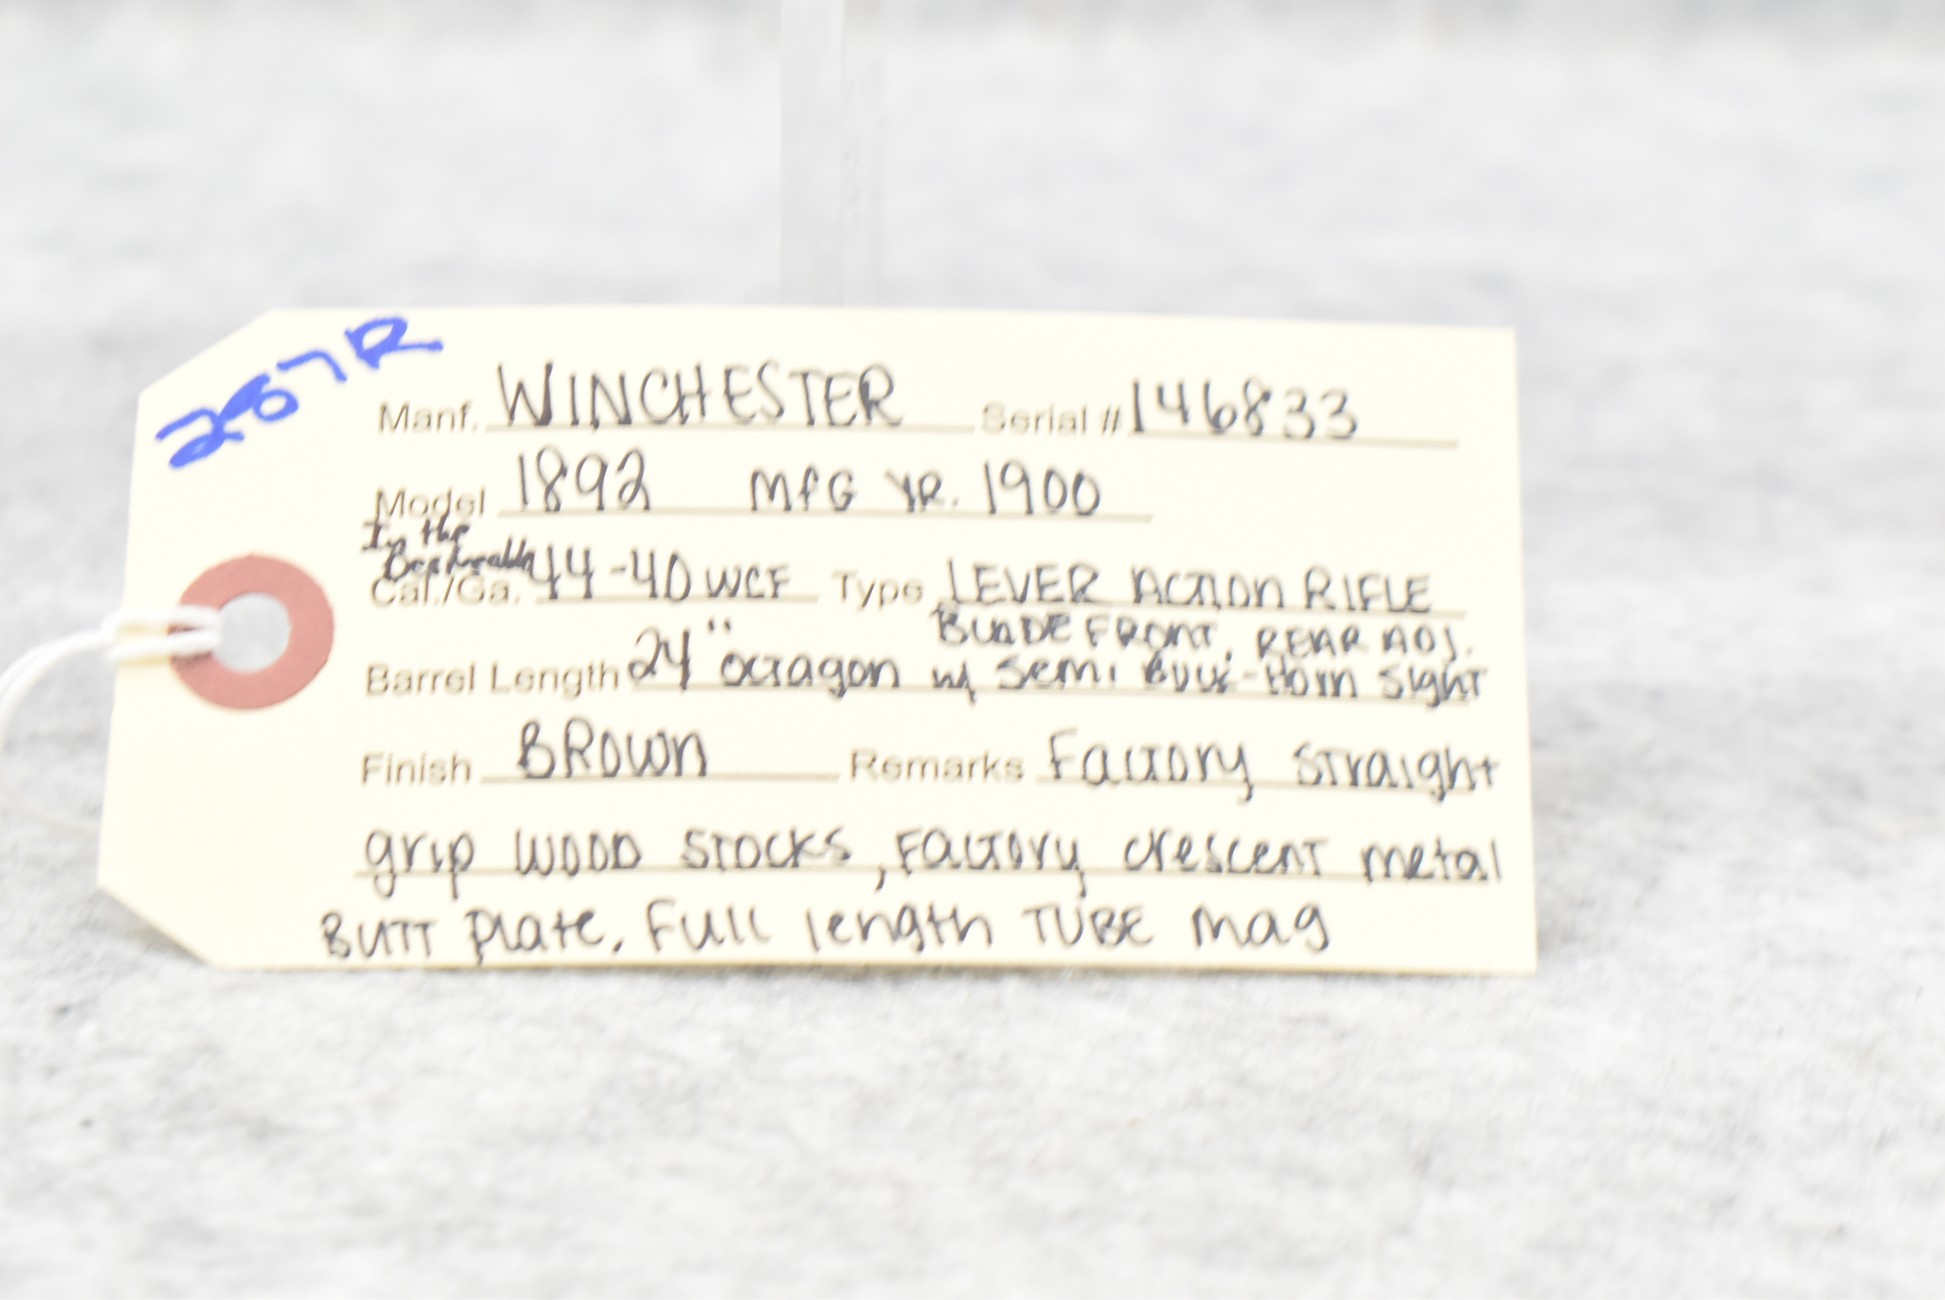 287R
Manf. WINCHESTER Serial # 146833
Model 1892 MFG YR. 1900
In the
Cal./Ga. 44-40 WCF Type LEVER ACTION RIFLE
BLADE FRONT, REAR ADJ.
Barrel Length 24" octagon w/ Semi Buck-Horn Sight
Finish BROWN Remarks Factory Straight
grip WOOD STOCKS, FACTORY crescent metal
BUTT plate, Full length TUBE mag